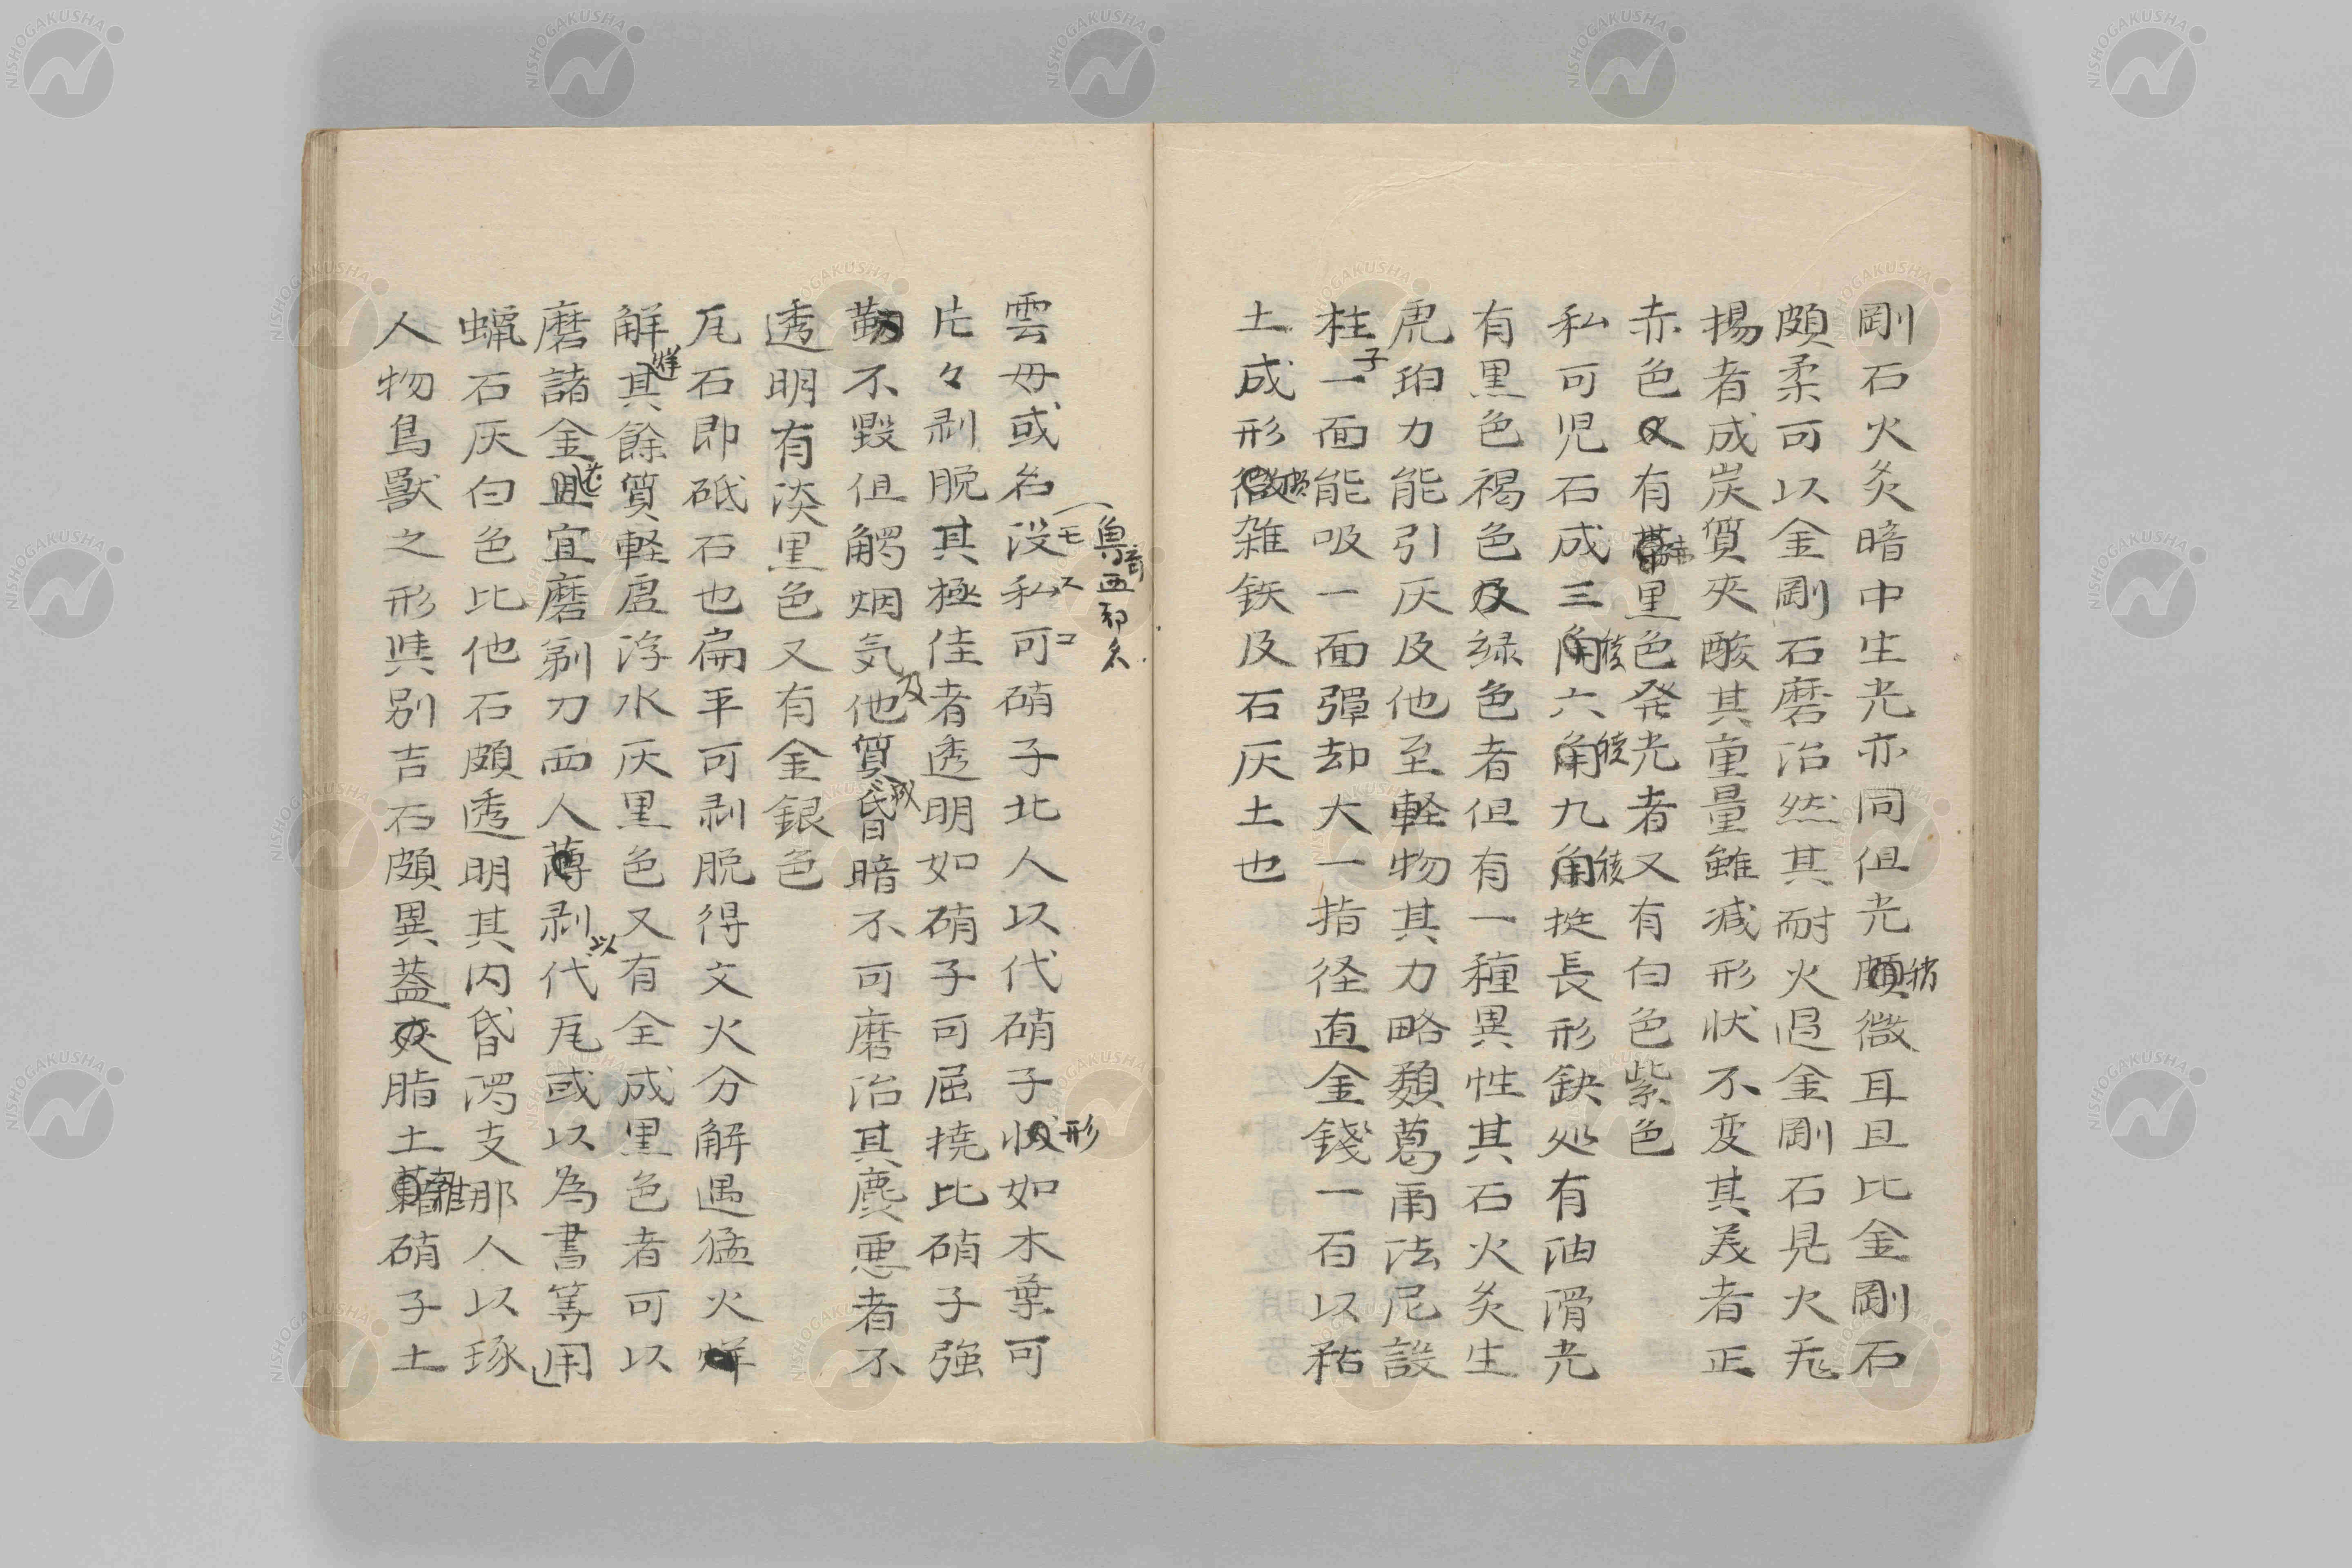 剛石火炙暗中生光亦同但光頗稍微耳且比金剛石
頗柔可以金剛石磨治然其耐火過金剛石見火天
揚者成炭質夾酸其重量雖减形状不変其美者正
赤色又有帯黒色発光者又有白色紫色
私可児石成三角稜六角稜九角稜挺長形缺処有油滑光
有黒色褐色及緑色者但有一種異性其石火炙生
虎珀力能引灰及他至軽物其力略類葛甬法尼設
柱子一面能吸一面弾却大一指径直金錢一百以秥
土成形微雑鉄及石灰土也
魯斎西郚名
モスコ
雲母或名没私可硝子北人以代硝子状形如木葉可
片々剥脱其極佳者透明如硝子可屈撓比硝子強
靭不毀但觸烟気及他質則昏暗不可磨治其麁悪者不
透明有淡黒色又有金銀色
瓦石即砥石也扁平可剥脱得文火分解遇猛火烊
解烊其餘質軽虚浮水灰黒色又有全成黒色者可以
磨諸金宜磨剃刀西人薄剥以代瓦或以為書等用
蝋石灰白色比他石頗透明其内昏濁支那人以琢
人物鳥獣之形其別吉石頗異蓋夾脂土雑硝子土
NISHOGAKUSHA